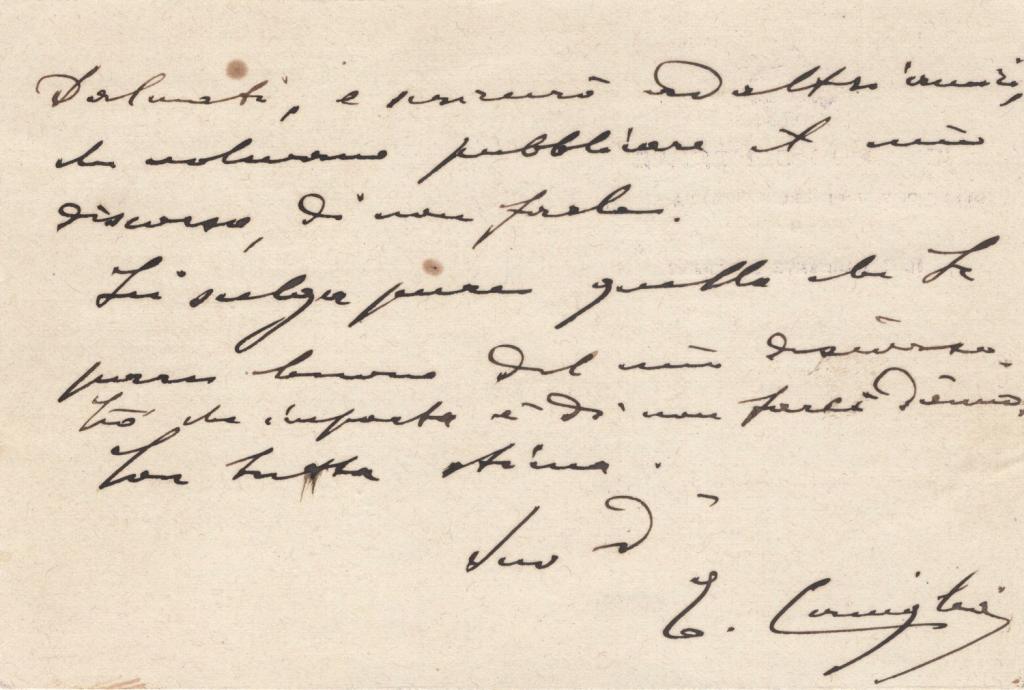 Dalmati, e scriverò ad altri amici,
che volevano pubblicare il mio
discorso, di non farlo.
Lei scelga pure quello che Le
parrà buono del mio discorso.
Ciò che importa è di non farsi
Con tutta stima.
Suo
E.